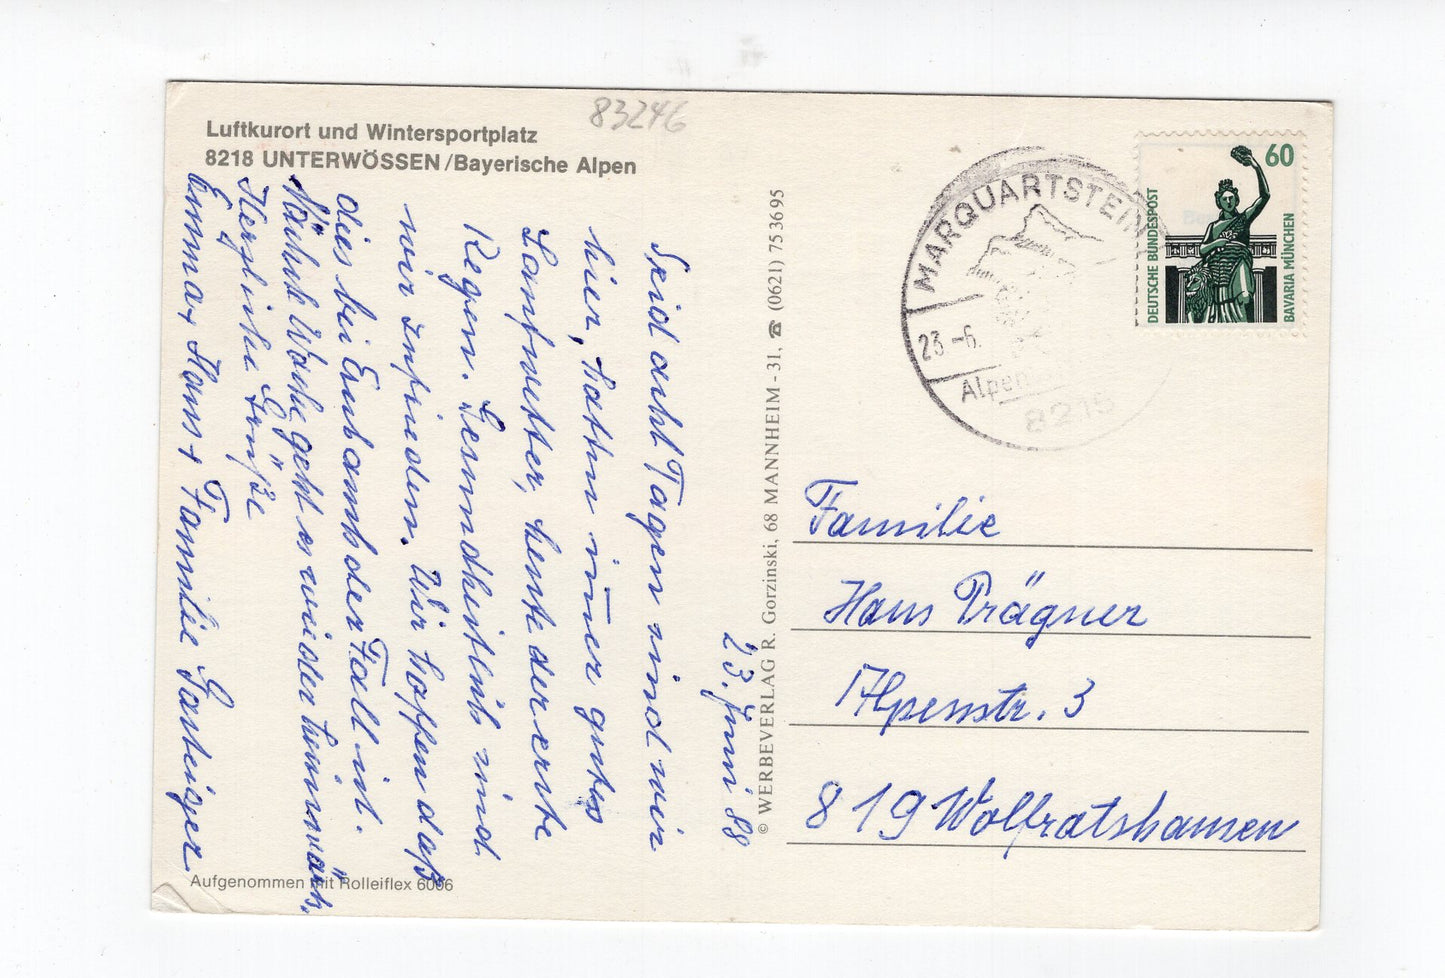 83246
Luftkurort und Wintersportplatz
8218 UNTERWÖSSEN/Bayerische Alpen
23. Juni 88
Seid acht Tagen sind wir
hier, hatten im̅er gutes
Laufwetter, heute der erste
Regen. Gesundheitlich sind
wir zufrieden. Wir hoffen daß
dies bei Euch auch der Fall ist.
Nächste Woche geht es wieder heimwärts.
Herzliche Grüße
Emma + Hans + Familie Gasteiger
Aufgenommen mit Rolleiflex 6006
© WERBEVERLAG R. Gorzinski, 68 MANNHEIM-31, ☎ (0621) 753695
MARQUARTSTEIN
23.-6.
Alpen
8215
60
DEUTSCHE BUNDESPOST
BAVARIA MÜNCHEN
Familie
Hans Prägner
Alpenstr. 3
819 Wolfratshausen